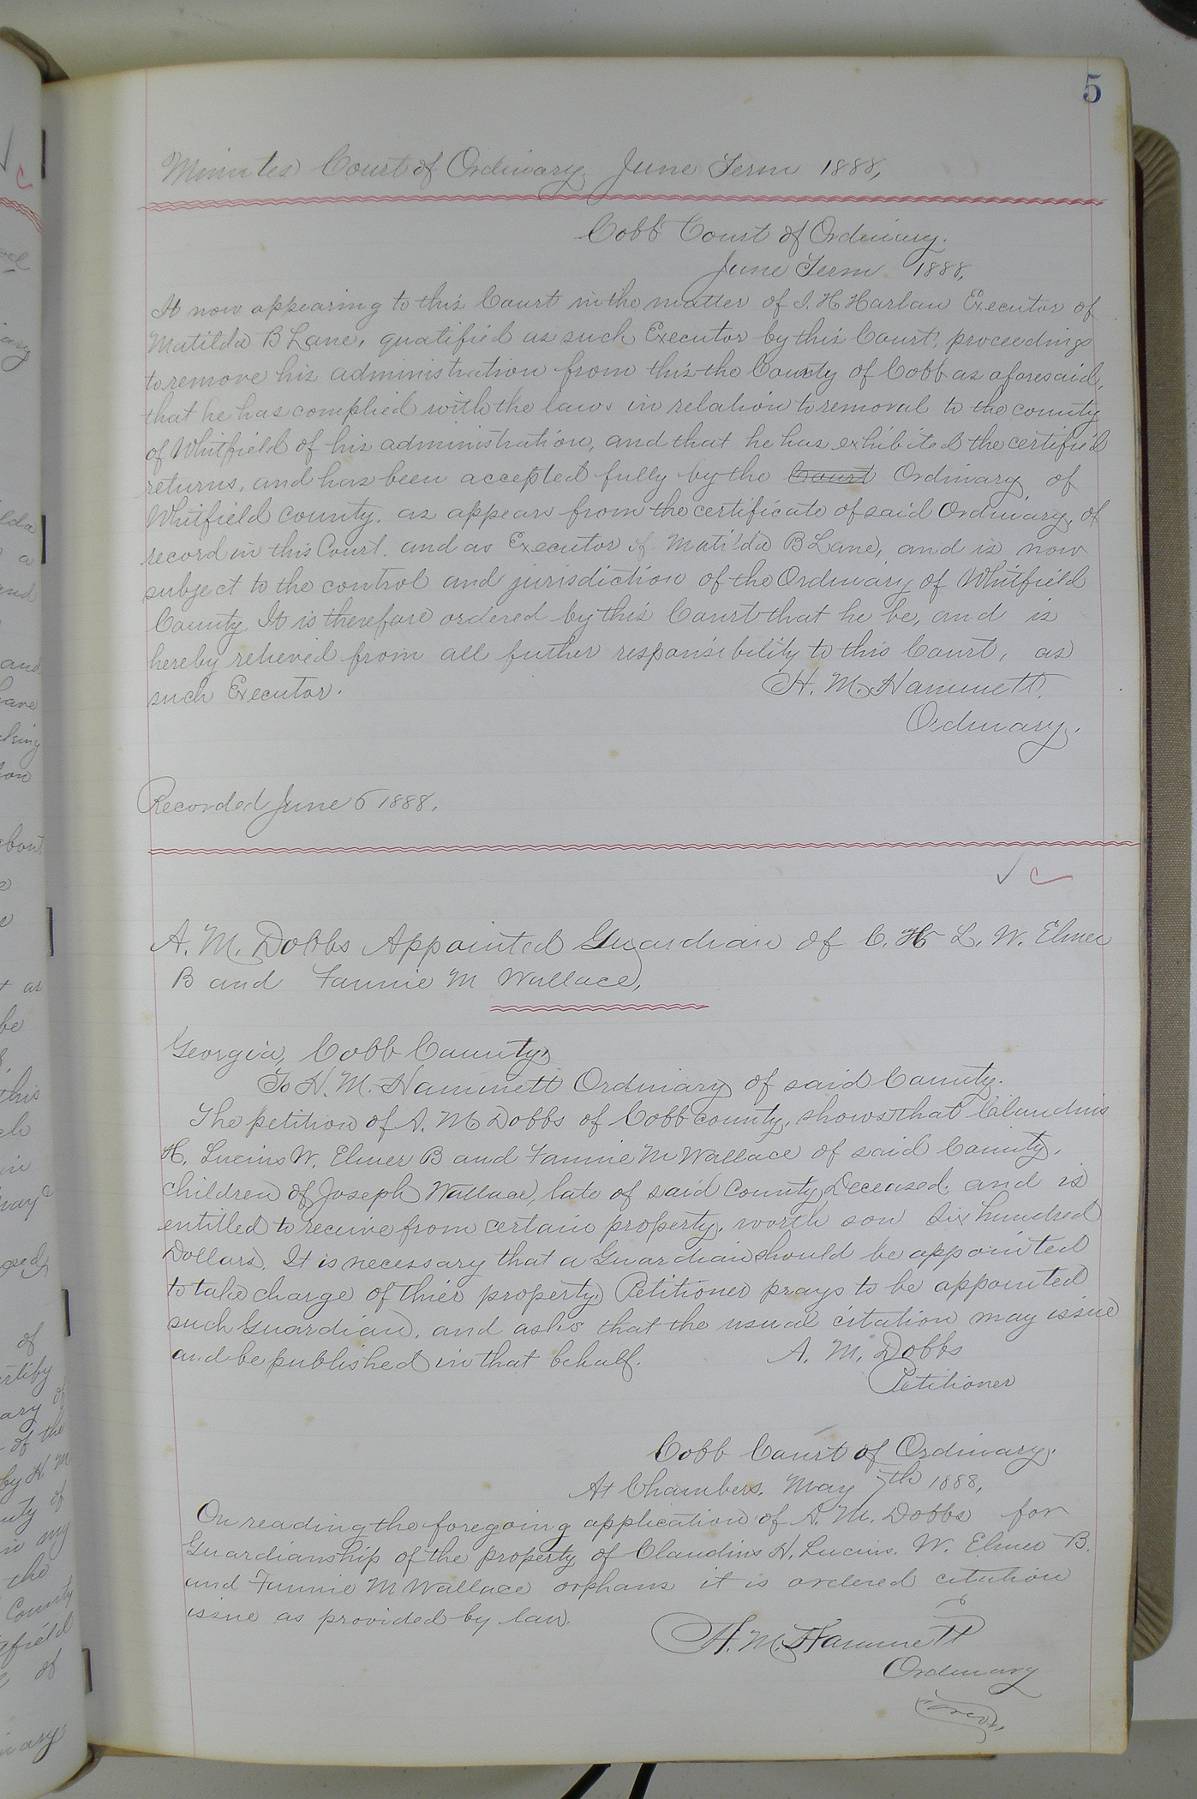 5
Minutes Court of Ordinary June Term 1888,
Cobb Court of Ordinary.
June Term 1888,
It now appearing to this Court in the matter of J. H Harlan Executor of
Matilda B Lane, qualified as such Executor by this Court, proceedings
to remove his administration from this the County of Cobb as aforesaid,
that he has complied with the laws in relation to removal to the county
of Whitfield of his administration, and that he has exhibited the certified
returns, and has been accepted fully by the Court Ordinary of
Whitfield county, as appears from the certificate of said Ordinary, of
record in this Court. and as Executor of Matilda B Lane, and is now
subject to the control and jurisdiction of the Ordinary of Whitfield
County It is therefore ordered by this Court that he be, and is
hereby relieved from all further responsibility to this Court, as
such Executor.
H. M. Hammett.
Ordinary.
Recorded June 6 1888.
A. M. Dobbs Appointed Guardian of C. H L. W. Elmer
B and Fannie M Wallace,
Georgia, Cobb County,
To H. M. Hammett Ordinary of said County.
The petition of A. M Dobbs of Cobb county, shows that Claudius
H. Lucius W. Elmer B and Fannie M Wallace of said County,
children of Joseph Wallace, late of said County Deceased, and is
entitled to receive from certain property, worth son Six hundred
Dollars. It is necessary that a Guardian should be appointed
to take charge of thier property. Petitioner prays to be appointed
such Guardian, and asks that the usual citation may issue
and be published in that behalf.
A. M. Dobbs
Petitioner
Cobb Court of Ordinary.
At Chambers, May 7th 1888,
On reading the foregoing application of A. M. Dobbs for
Guardianship of the property of Claudius H, Lucius. W. Elmer B.
and Fannie M Wallace orphans it is ordered citation
issue as provided by law.
H. M. Hammett
Ordinary